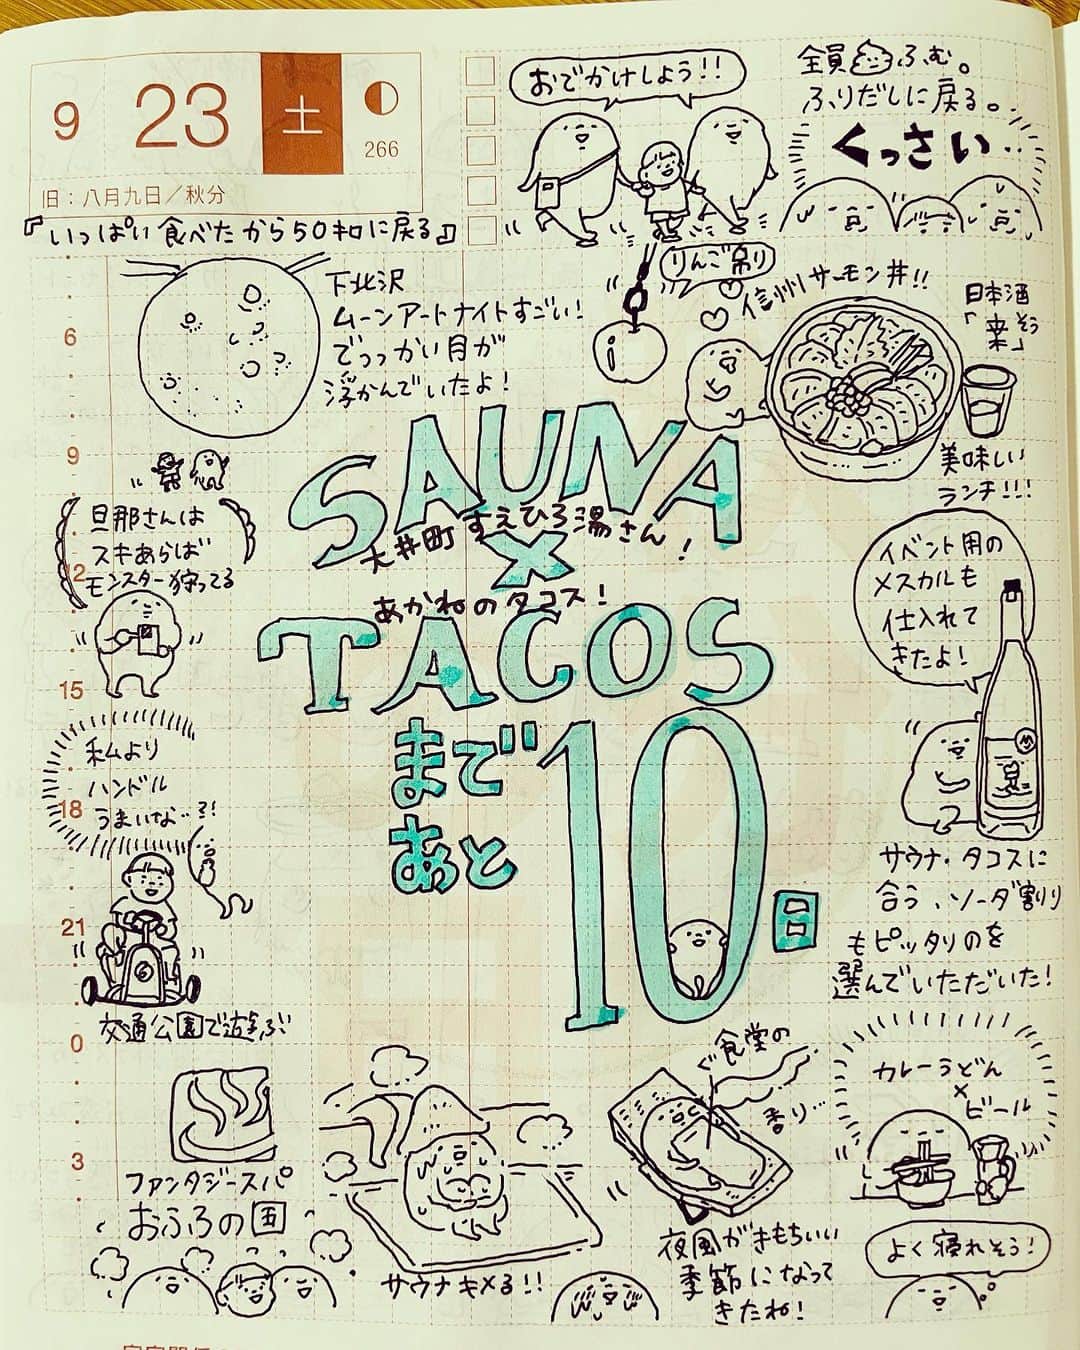 9
23
土
266
旧：八月九日／秋分
『いっぱい食べたから50キロに戻る』
おでかけしよう!!
全員
ふむ。
ふりだしに戻る。
くっさい…
りんご吊り
i
信州サーモン丼!!
日本酒
美味しい
ランチ!!!
下北沢
ムーンアートナイトすごい!
でっっかい月が
浮かんでいたよ!
6
9
12
15
18
21
0
3
SAUNA
大井町すえひろ湯さん!
×
あかねのタコス!
TACOS
まで
あと
10
日
旦那さんは
スキあらば
モンスター狩ってる
イベント用の
メスカルも
仕入れて
きたよ!
私より
ハンドル
うまいな…?!
6
交通公園で遊ぶ
サウナ・タコスに
合う、ソーダ割り
もピッタリのを
選んでいただいた!
ファンタジースパ
おふろの国
サウナキメる!!
食堂の
香り…
夜風がきもちいい
季節になって
きたね!
カレーうどん
×
ビール
よく寝れそう!